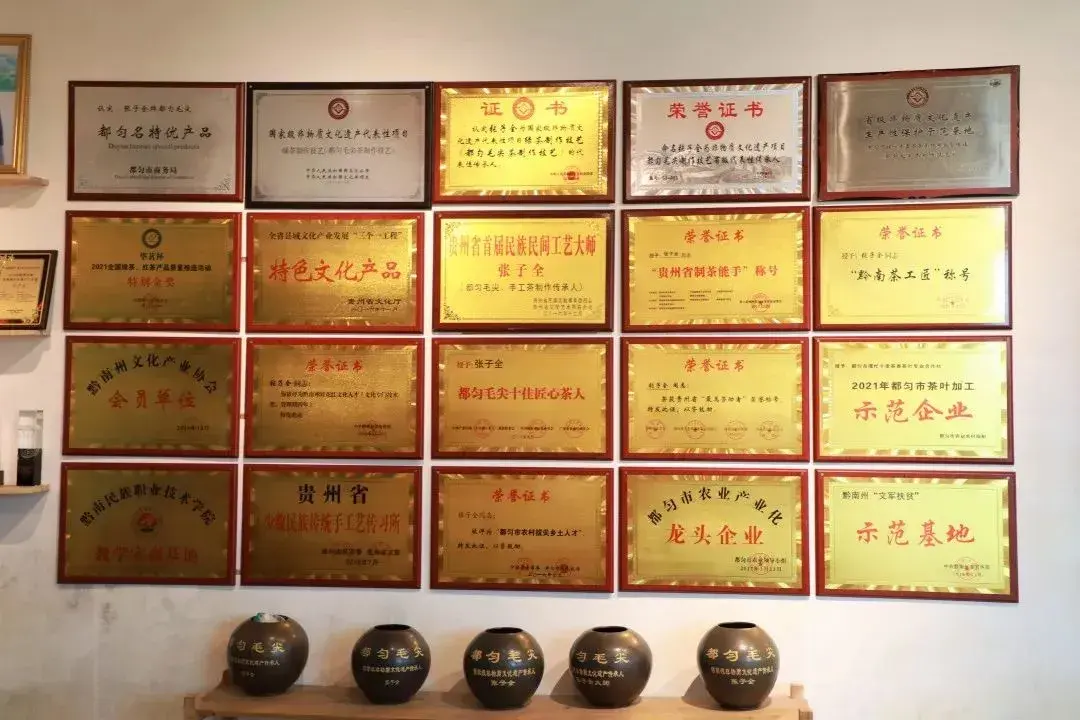 认定：张子全牌都匀毛尖
都匀名特优产品
都匀市商务局
国家级非物质文化遗产代表性项目
证书
认定张子全为国家级非物质文
化遗产代表性项目绿茶制作技艺
（都匀毛尖茶制作技艺）的代
表性传承人
荣誉证书
命名张子全为非物质文化遗产项目
都匀毛尖制作技艺省级代表性传承人
省级非物质文化遗产
生产性保护示范基地
华茗杯
2021全国绿茶、红茶产品质量推选活动
特别金奖
全省县域文化产业发展“三个一工程”
特色文化产品
贵州省文化厅
贵州省首届民族民间工艺大师
张子全
（都匀毛尖、手工茶制作传承人）
荣誉证书
授予：张子全同志
“贵州省制茶能手”称号
荣誉证书
授予：张子全同志
“黔南茶工匠”称号
黔南州文化产业协会
会员单位
荣誉证书
张子全同志：
特发此证
授予：张子全
都匀毛尖十佳匠心茶人
荣誉证书
张子全同志：
荣获贵州省“最美劳动者”荣誉称号
特发此证，以资鼓励
2021年都匀市茶叶加工
示范企业
都匀市农业农村局
黔南民族职业技术学院
教学实训基地
贵州省
少数民族传统手工艺传习所
荣誉证书
张子全同志：
被评为“都匀市农村拔尖乡土人才”
特发此证，以资鼓励
都匀市农业产业化
龙头企业
黔南州“文军扶贫”
示范基地
都匀毛尖
张子全
都匀毛尖
张子全
都匀毛尖
张子全
都匀毛尖
都匀毛尖
张子全